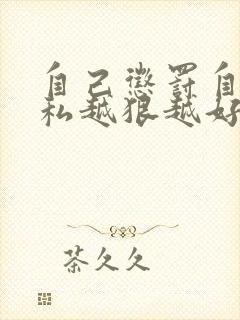 自己惩罚自
私越狠越好
茶久久